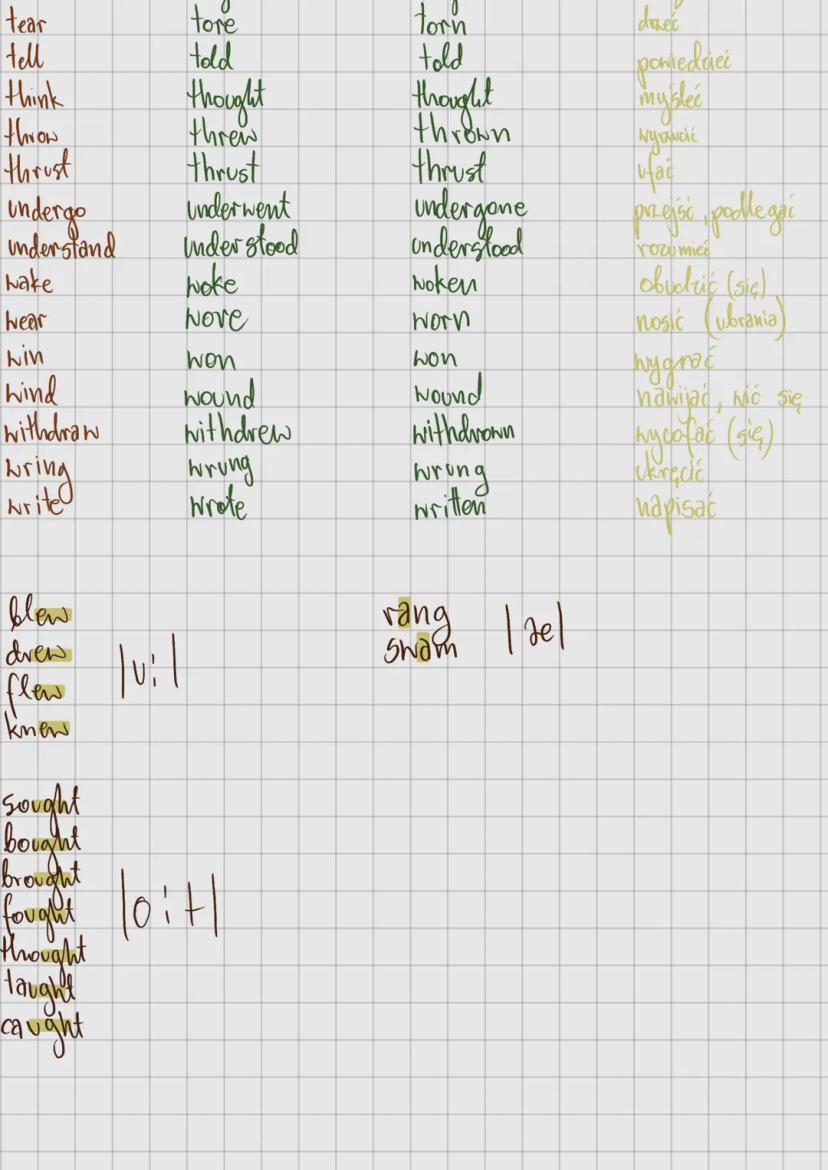 tear tore torn drzeć
tell told told powiedzieć
think thought thought myśleć
throw threw thrown wyrzucić
thrust thrust thrust ufać
undergo underwent undergone przejść, podlegać
understand understood understood rozumieć
wake woke woken obudzić (się)
wear wore worn nosić (ubrania)
win won won wygrać
wind wound wound nawijać, wić się
withdraw withdrew withdrawn wycofać (się)
wring wrung wrung ukręcić
write wrote written napisać
blew
drew
flew
knew
|u:|
rang
swam
|æ|
sought
bought
brought
fought
thought
taught
caught
|o:t|